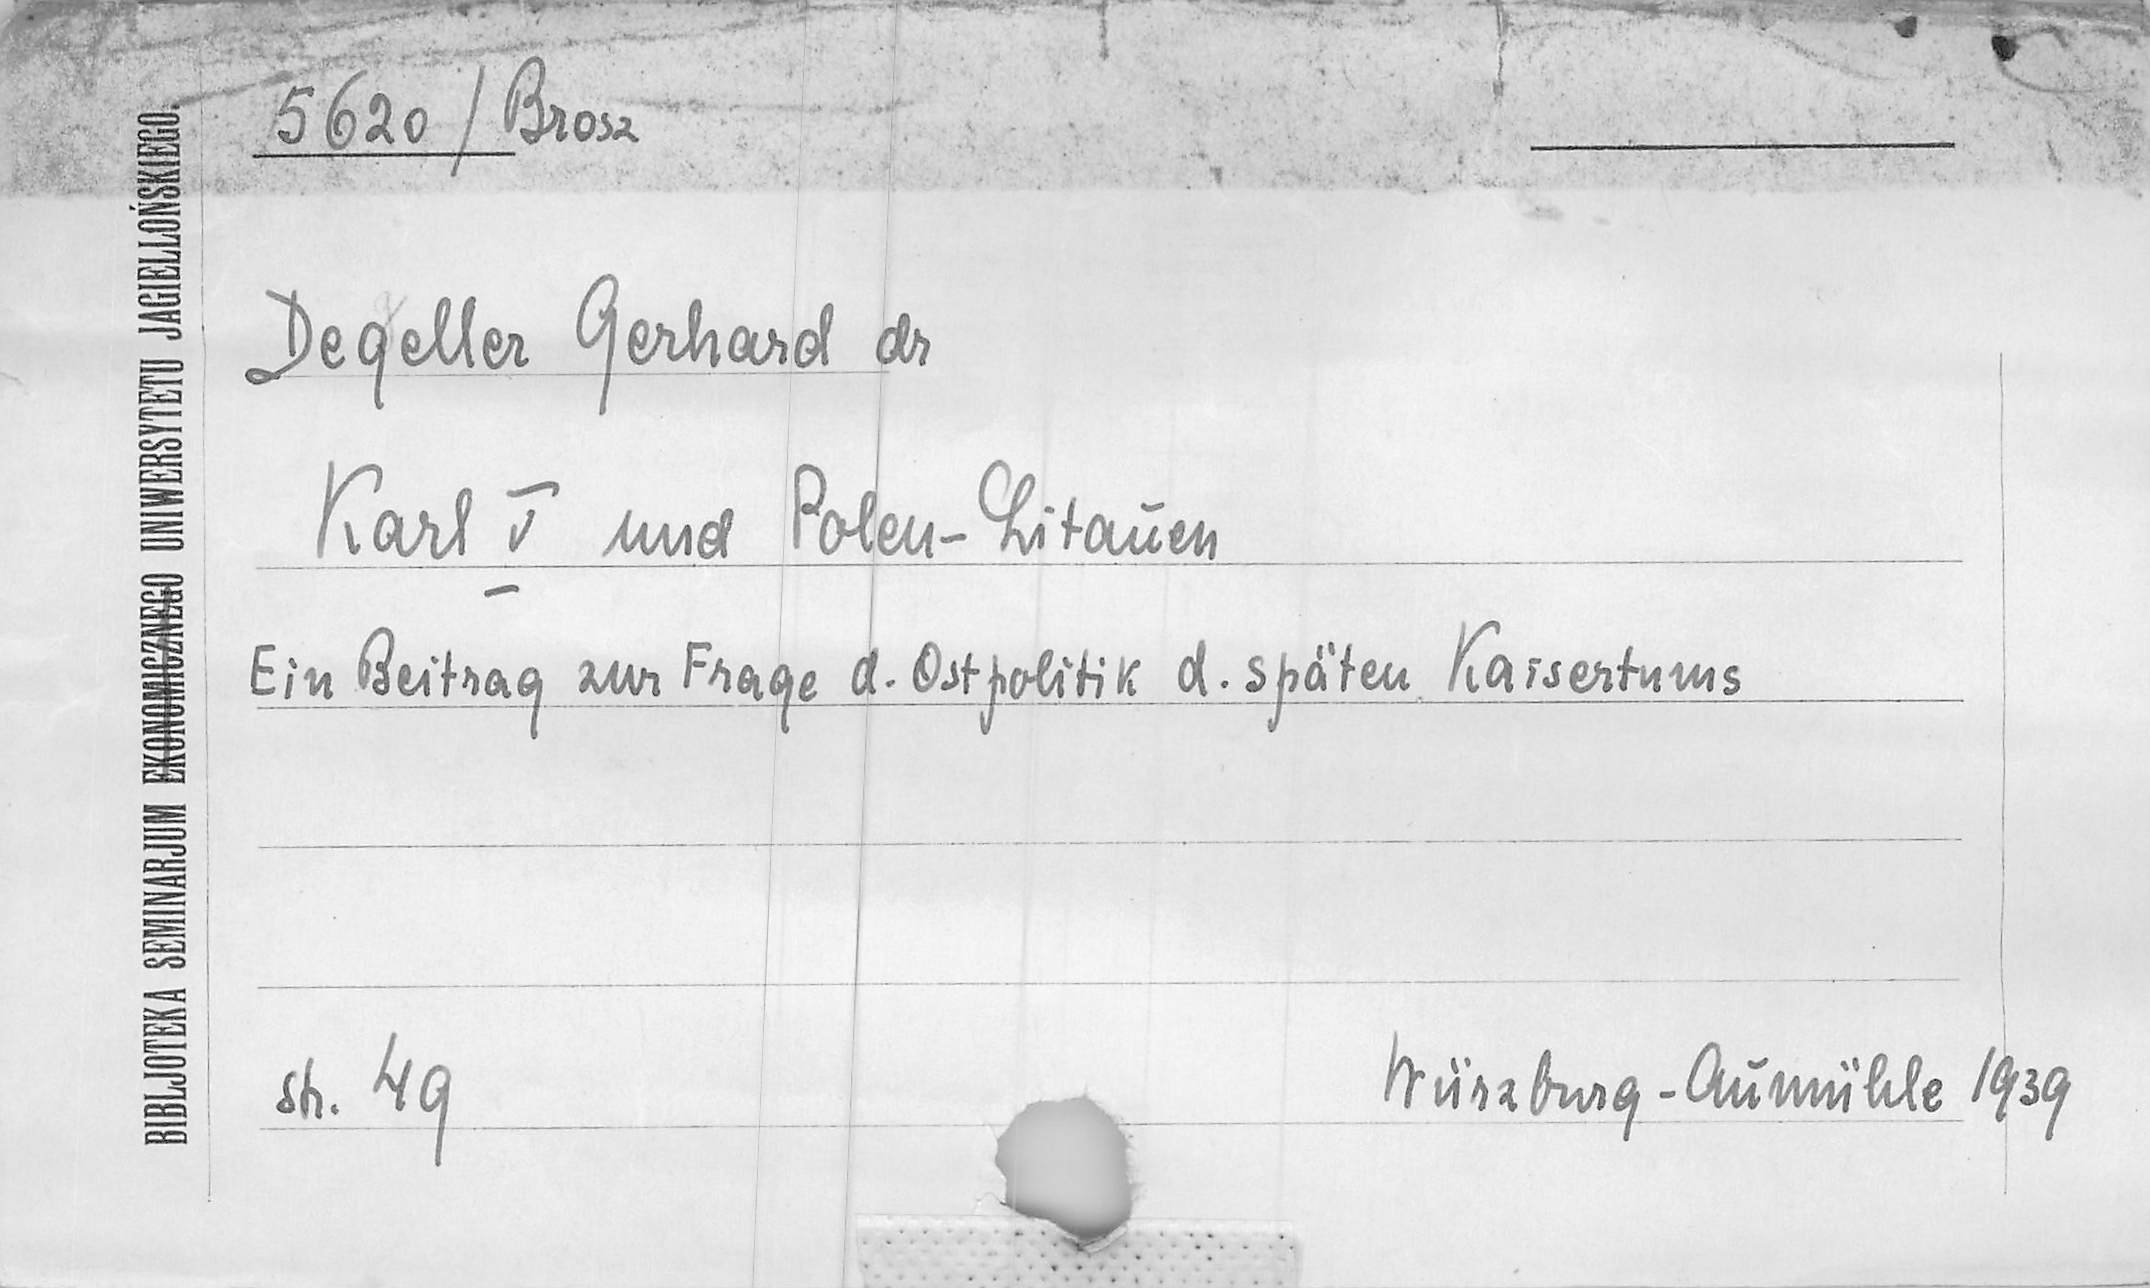 5620 / Brosz
Degeller Gerhard dr
Karl V und Polen-Litauen
Ein Beitrag zur Frage d. Ostpolitik d. späten Kaisertums
str. 49
Würzburg-Aumühle 1939
BIBLJOTEKA SEMINARJUM EKONOMICZNEGO UNIWERSYTETU JAGIELLOŃSKIEGO.